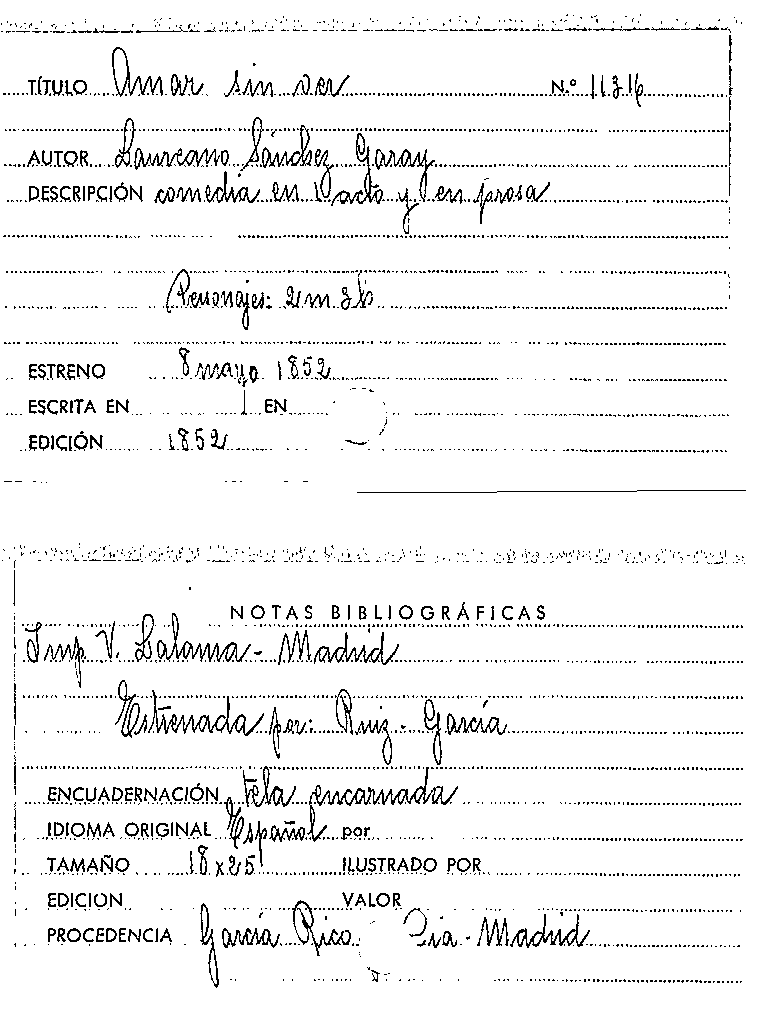 TÍTULO Amar sin ver N.º 11316
AUTOR Laureano Sánchez Garay
DESCRIPCIÓN comedia en 1 acto y en prosa
Personajes: 2 m 3 h
ESTRENO 8 mayo 1852
ESCRITA EN EN
EDICIÓN 1852
NOTAS BIBLIOGRÁFICAS
Imp V. Lalama - Madrid
Estrenada por: Ruiz - García
ENCUADERNACIÓN tela encarnada
IDIOMA ORIGINAL Español por
TAMAÑO 18 x 25 ILUSTRADO POR
EDICION VALOR
PROCEDENCIA García Rico Cia - Madrid